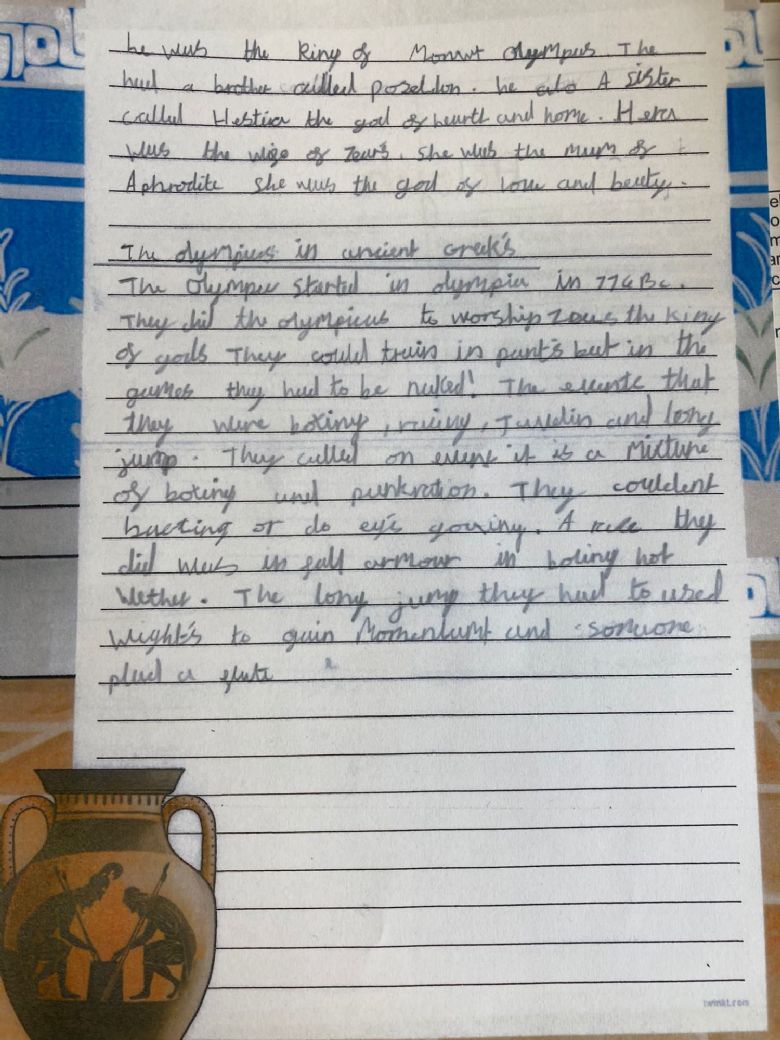 he was the King of Mount Oleympus The
had a brother called poseidon. he also A sister
called Hestia the god of hearth and home. Hera
was the wife of Zeus. She was the mum of
Aphrodite she was the god of love and beuty.
The olympics in ancient Greek's
The Olympic started in olympia in 776 Bc.
They did the olympicus to worship Zeus the King
of gods They could train in pants but in the
games they had to be naked! The events that
they were boxing, racing, Javelin and long
jump. They called on event it is a Mixture
of boxing and punkration. They couldent
or do eye's gouging. A race they
did was in full armour in boling hot
Wether. The long jump they had to used
Wight's to gain Momentumt and someone
plad a flute
twinkl.com